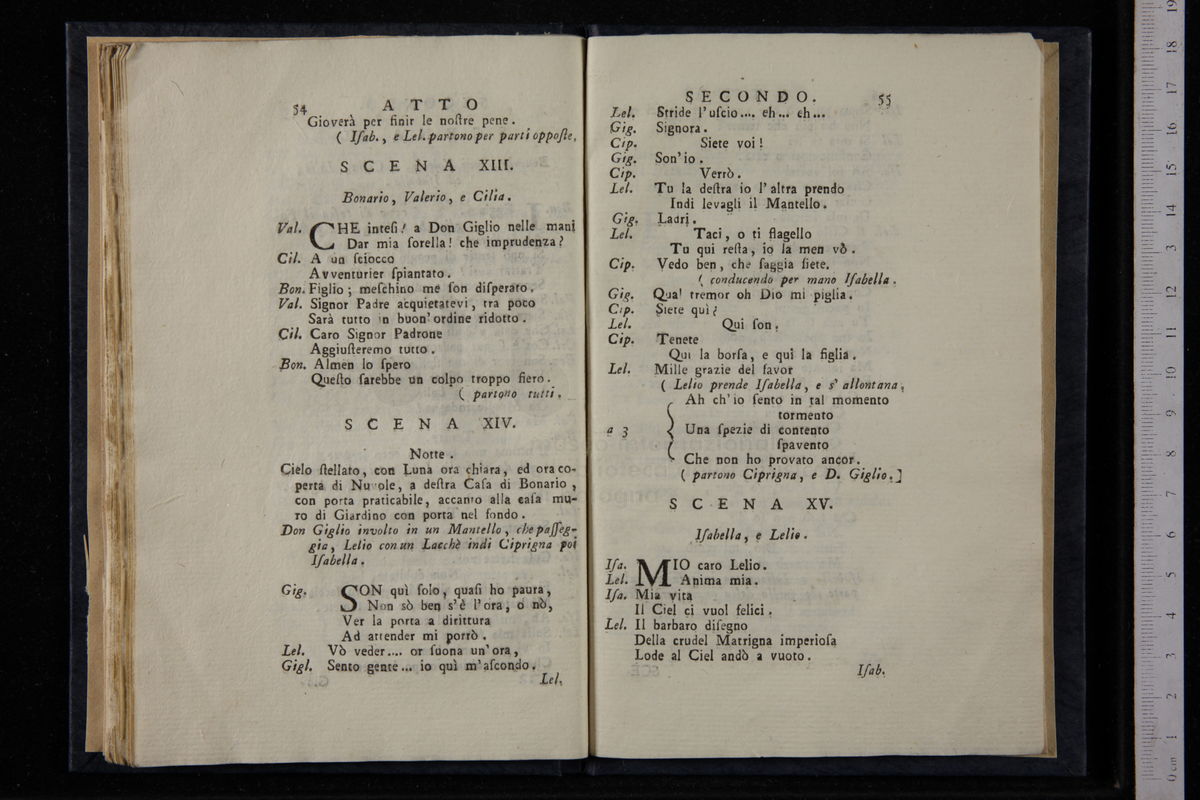 54
ATTO
Gioverà per finir le noſtre pene.
( Iſab., e Lel. partono per parti oppoſte.
SCENA XIII.
Bonario, Valerio, e Cilia.
Val. CHE inteſi! a Don Giglio nelle mani
Dar mia ſorella! che imprudenza?
Cil. A un ſciocco
Avventurier ſpiantato.
Bon. Figlio; meſchino me ſon diſperato.
Val. Signor Padre acquietatevi, tra poco
Sarà tutto in buon' ordine ridotto.
Cil. Caro Signor Padrone
Aggiuſteremo tutto.
Bon. Almen lo ſpero
Queſto ſarebbe un colpo troppo fiero.
( partono tutti.
SCENA XIV.
Notte.
Cielo ſtellato, con Luna ora chiara, ed ora co-
perta di Nuvole, a deſtra Caſa di Bonario,
con porta praticabile, accanto alla caſa mu-
ro di Giardino con porta nel fondo.
Don Giglio involto in un Mantello, che paſſeg-
gia, Lelio con un Lacchè indi Ciprigna poi
Iſabella.
Gig. SON quì ſolo, quaſi ho paura,
Non sò ben s'è l'ora, o nò,
Ver la porta a dirittura
Ad attender mi porrò.
Lel. Vò veder.... or ſuona un'ora,
Gigl. Sento gente... io quì m'aſcondo.
Lel.
SECONDO.
55
Lel. Stride l'uſcio.... eh... eh...
Gig. Signora.
Cip. Siete voi!
Gig. Son'io.
Cip. Verrò.
Lel. Tu la deſtra io l'altra prendo
Indi levagli il Mantello.
Gig. Ladri.
Lel. Taci, o ti flagello
Tu qui reſta, io la men vò.
Cip. Vedo ben, che ſaggia ſiete.
( conducendo per mano Iſabella.
Gig. Qual tremor oh Dio mi piglia.
Cip. Siete quì?
Lel. Qui ſon.
Cip. Tenete
Qui la borſa, e quì la figlia.
Lel. Mille grazie del favor
( Lelio prende Iſabella, e s' allontana.
Ah ch'io ſento in tal momento
tormento
a 3 Una ſpezie di contento
ſpavento
Che non ho provato ancor.
( partono Ciprigna, e D. Giglio.]
SCENA XV.
Iſabella, e Lelio.
Iſa. MIO caro Lelio.
Lel. Anima mia.
Iſa. Mia vita
Il Ciel ci vuol felici.
Lel. Il barbaro diſegno
Della crudel Matrigna imperioſa
Lode al Ciel andò a vuoto.
Iſab.
0 cm 1 2 3 4 5 6 7 8 9 10 11 12 13 14 15 16 17 18 19